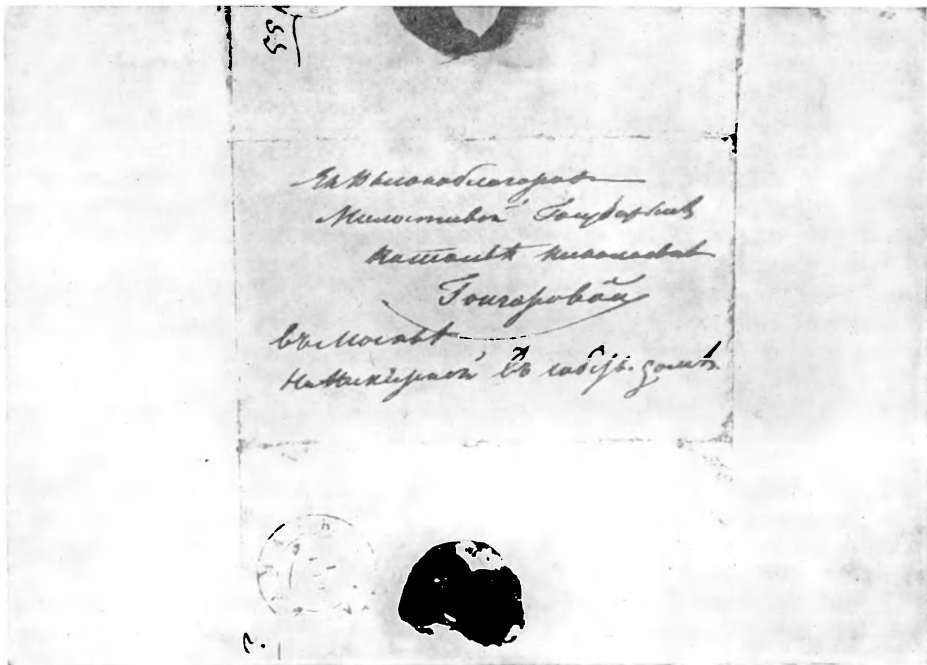 55
Ея Высокоблагород
Милостивой Государынѣ
Натальѣ Николаевнѣ
Гончаровой
въ Москвѣ
На Никитской въ собств. домѣ.